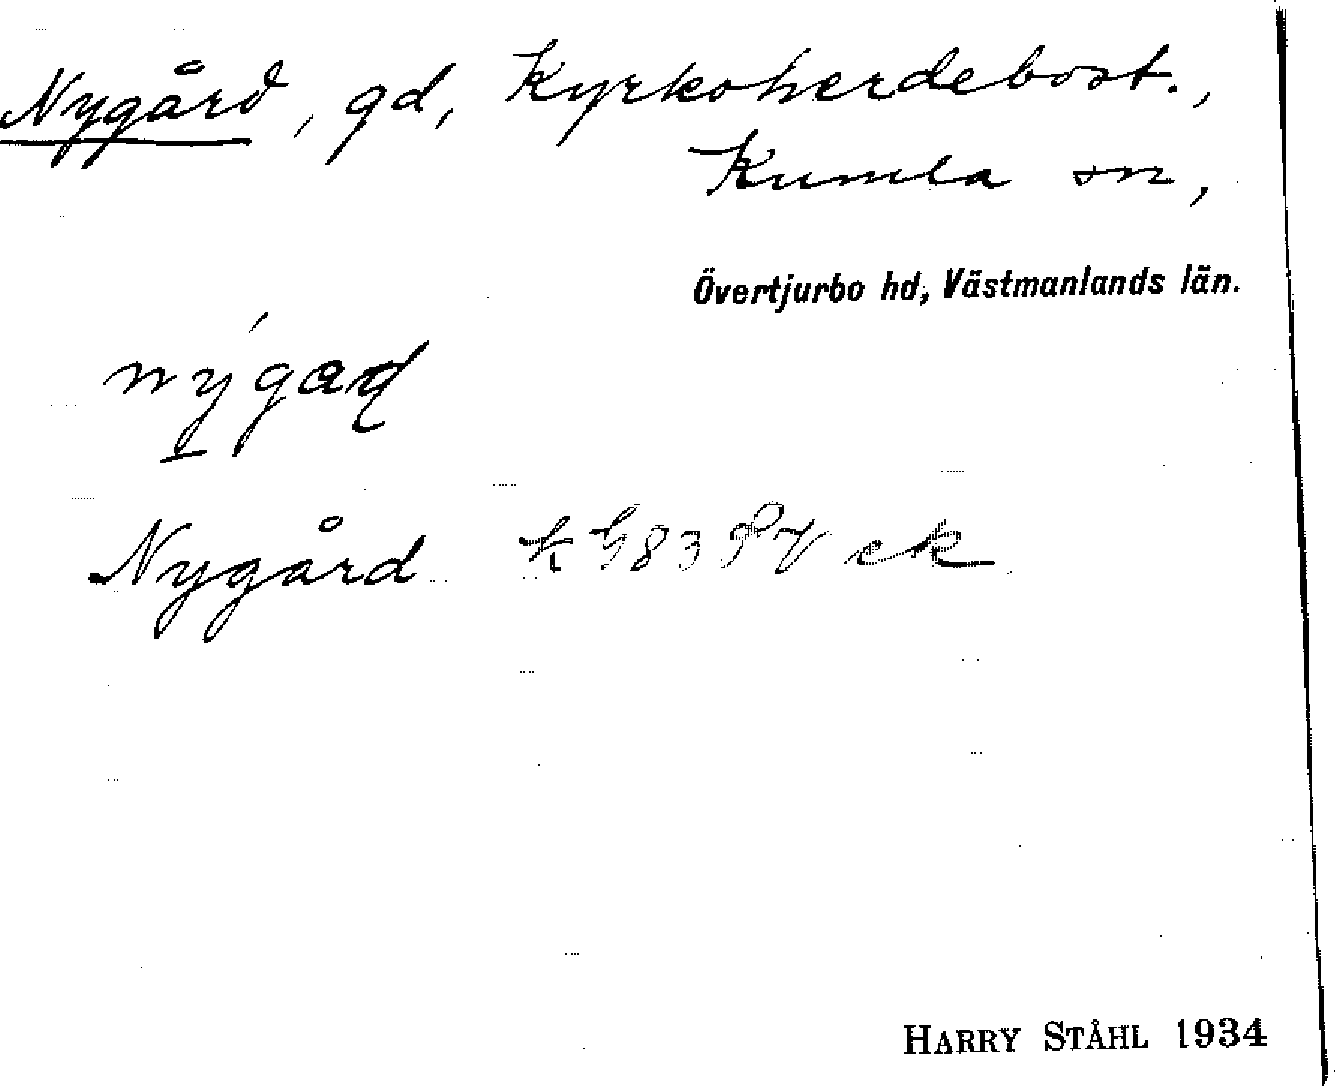 Nygård, gd, Kyrkoherdebost.,
Kumla sn,
Övertjurbo hd, Västmanlands län.
Nygård
HARRY STÅHL 1934